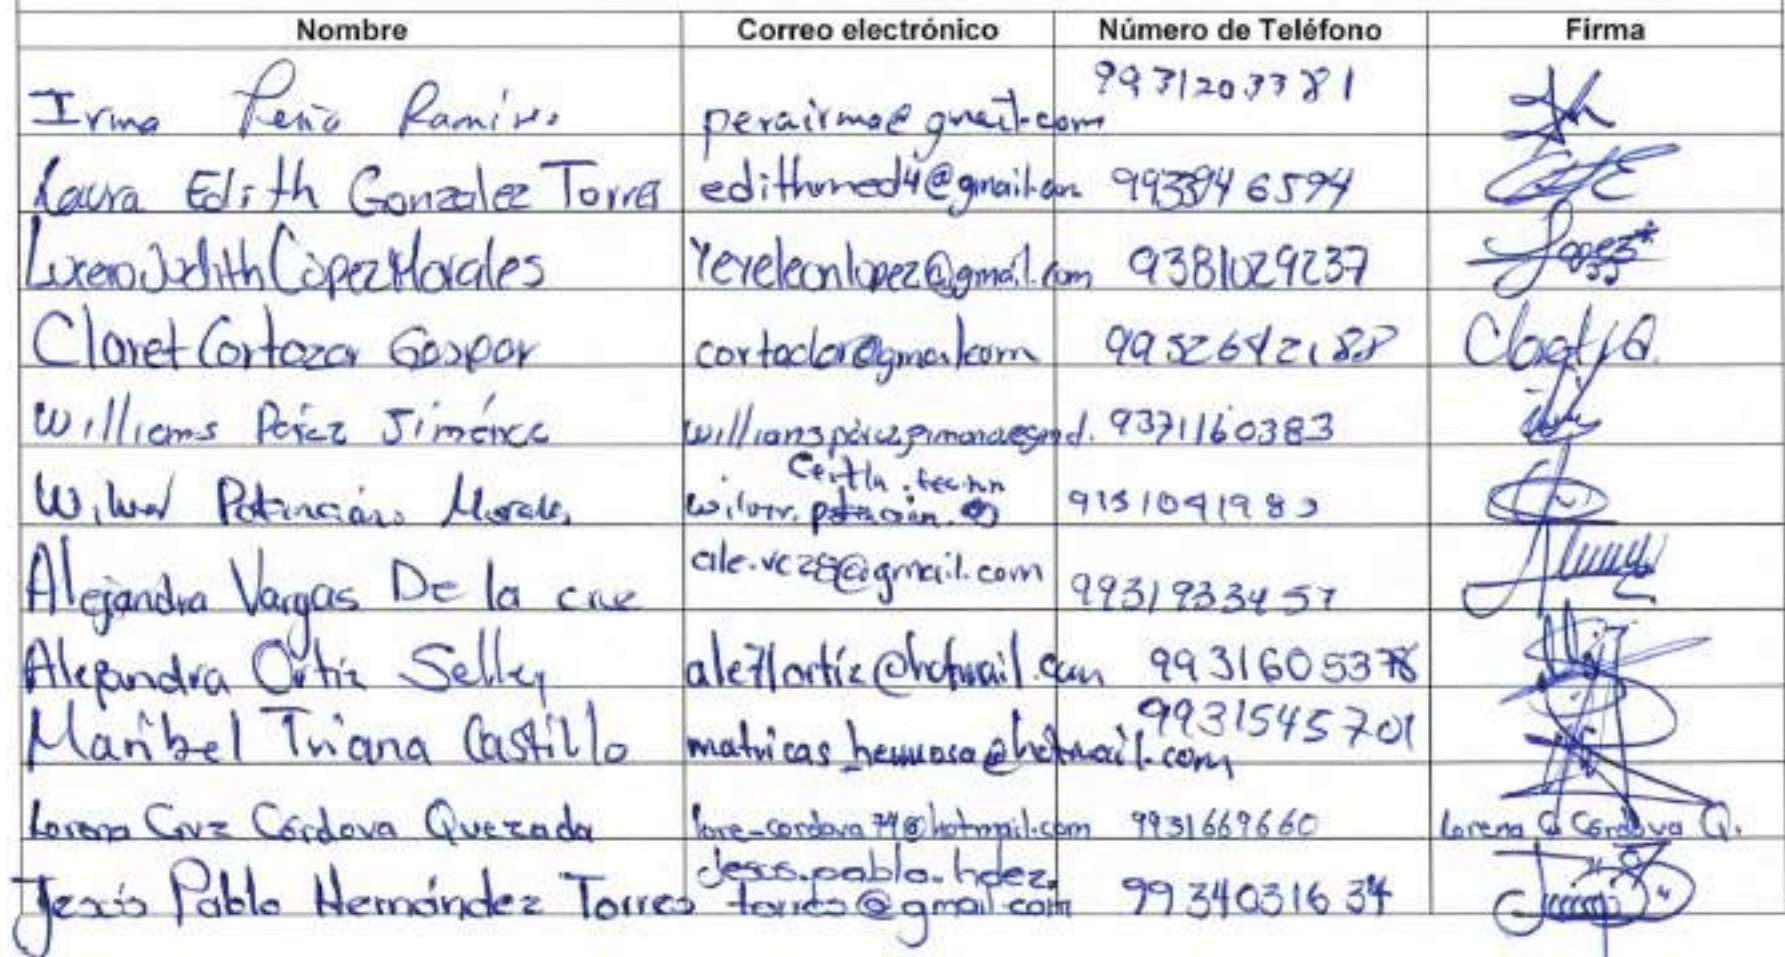 Nombre Correo electrónico Número de Teléfono Firma
Irma Peña Ramírez perairma@gmail.com 9931203381
Laura Edith Gonzalez Torres edithmed4@gmail.com 9933946594
Lucero Judith López Morales Yereleonlopez@gmail.com 9381029237
Claret Cortazar Gaspar cortaclar@gmail.com 9952642188
Williams Pérez Jiménez 9371160383
Wilver Potenciano Morales
Alejandra Vargas De la cruz ale.vc28@gmail.com 9931933457
Alejandra Ortiz Selley ale71ortiz@hotmail.com 9931605378
Maribel Triana Castillo matricas_hermosa@hotmail.com 9931545701
Lorena Cruz Córdova Quezada lore-cordova74@hotmail.com 9931669660 Lorena C. Córdova Q.
Jesús Pablo Hernández Torres jesus.pablo.hdez.
torres@gmail.com 9934031634